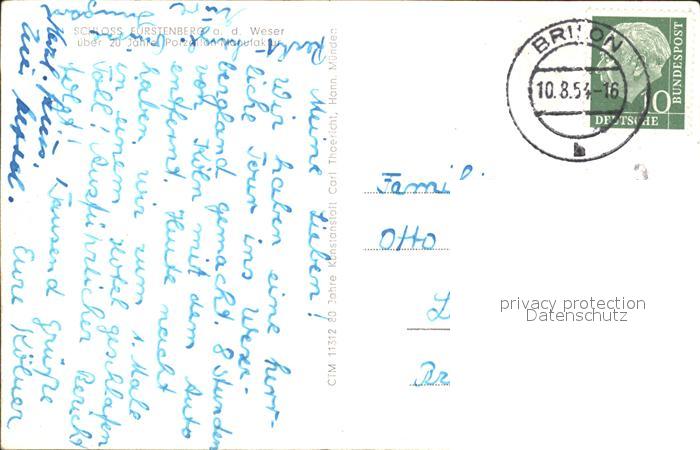 SCHLOSS FÜRSTENBERG a. d. Weser
über 20 Jahre Porzellan-Manufaktur
Meine Lieben!
Wir haben eine herr-
liche Tour ins Weser-
bergland gemacht. 8 Stunden
von Köln mit dem Auto
entfernt. Heute nacht
haben wir zum 1. Male
in einem Hotel geschlafen
Toll! Ausführlicher Bericht
folgt!
Tausend Grüße
Eure Kölner
CTM 11312 80 Jahre Kunstanstalt Carl Thoericht, Hann. Münden
BRILON
10.8.54-16
b
DEUTSCHE BUNDESPOST
10
Famil
Otto
L
Br
privacy protection
Datenschutz